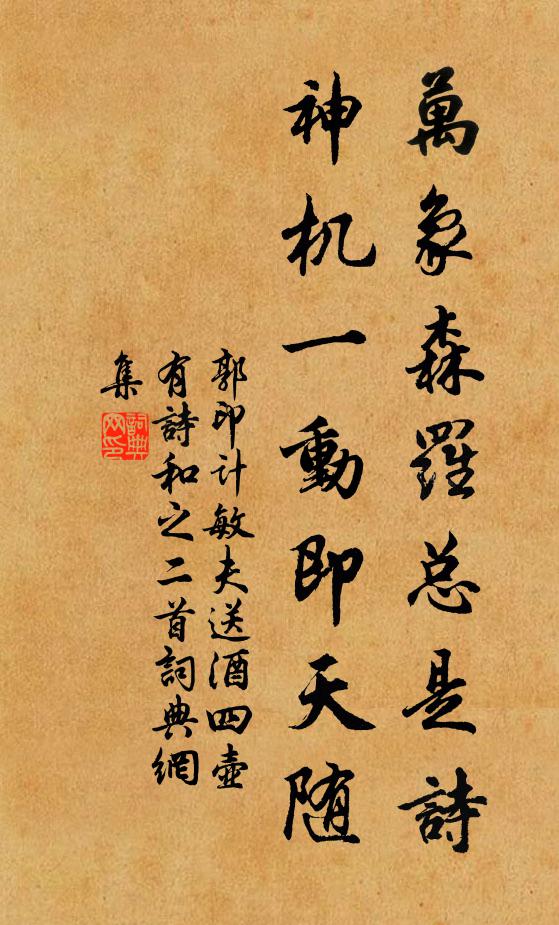 萬象森羅总是詩
神机一動即天随
郭印计敏夫送酒四壺
有詩和之二首詞典網
集
詞典
网印